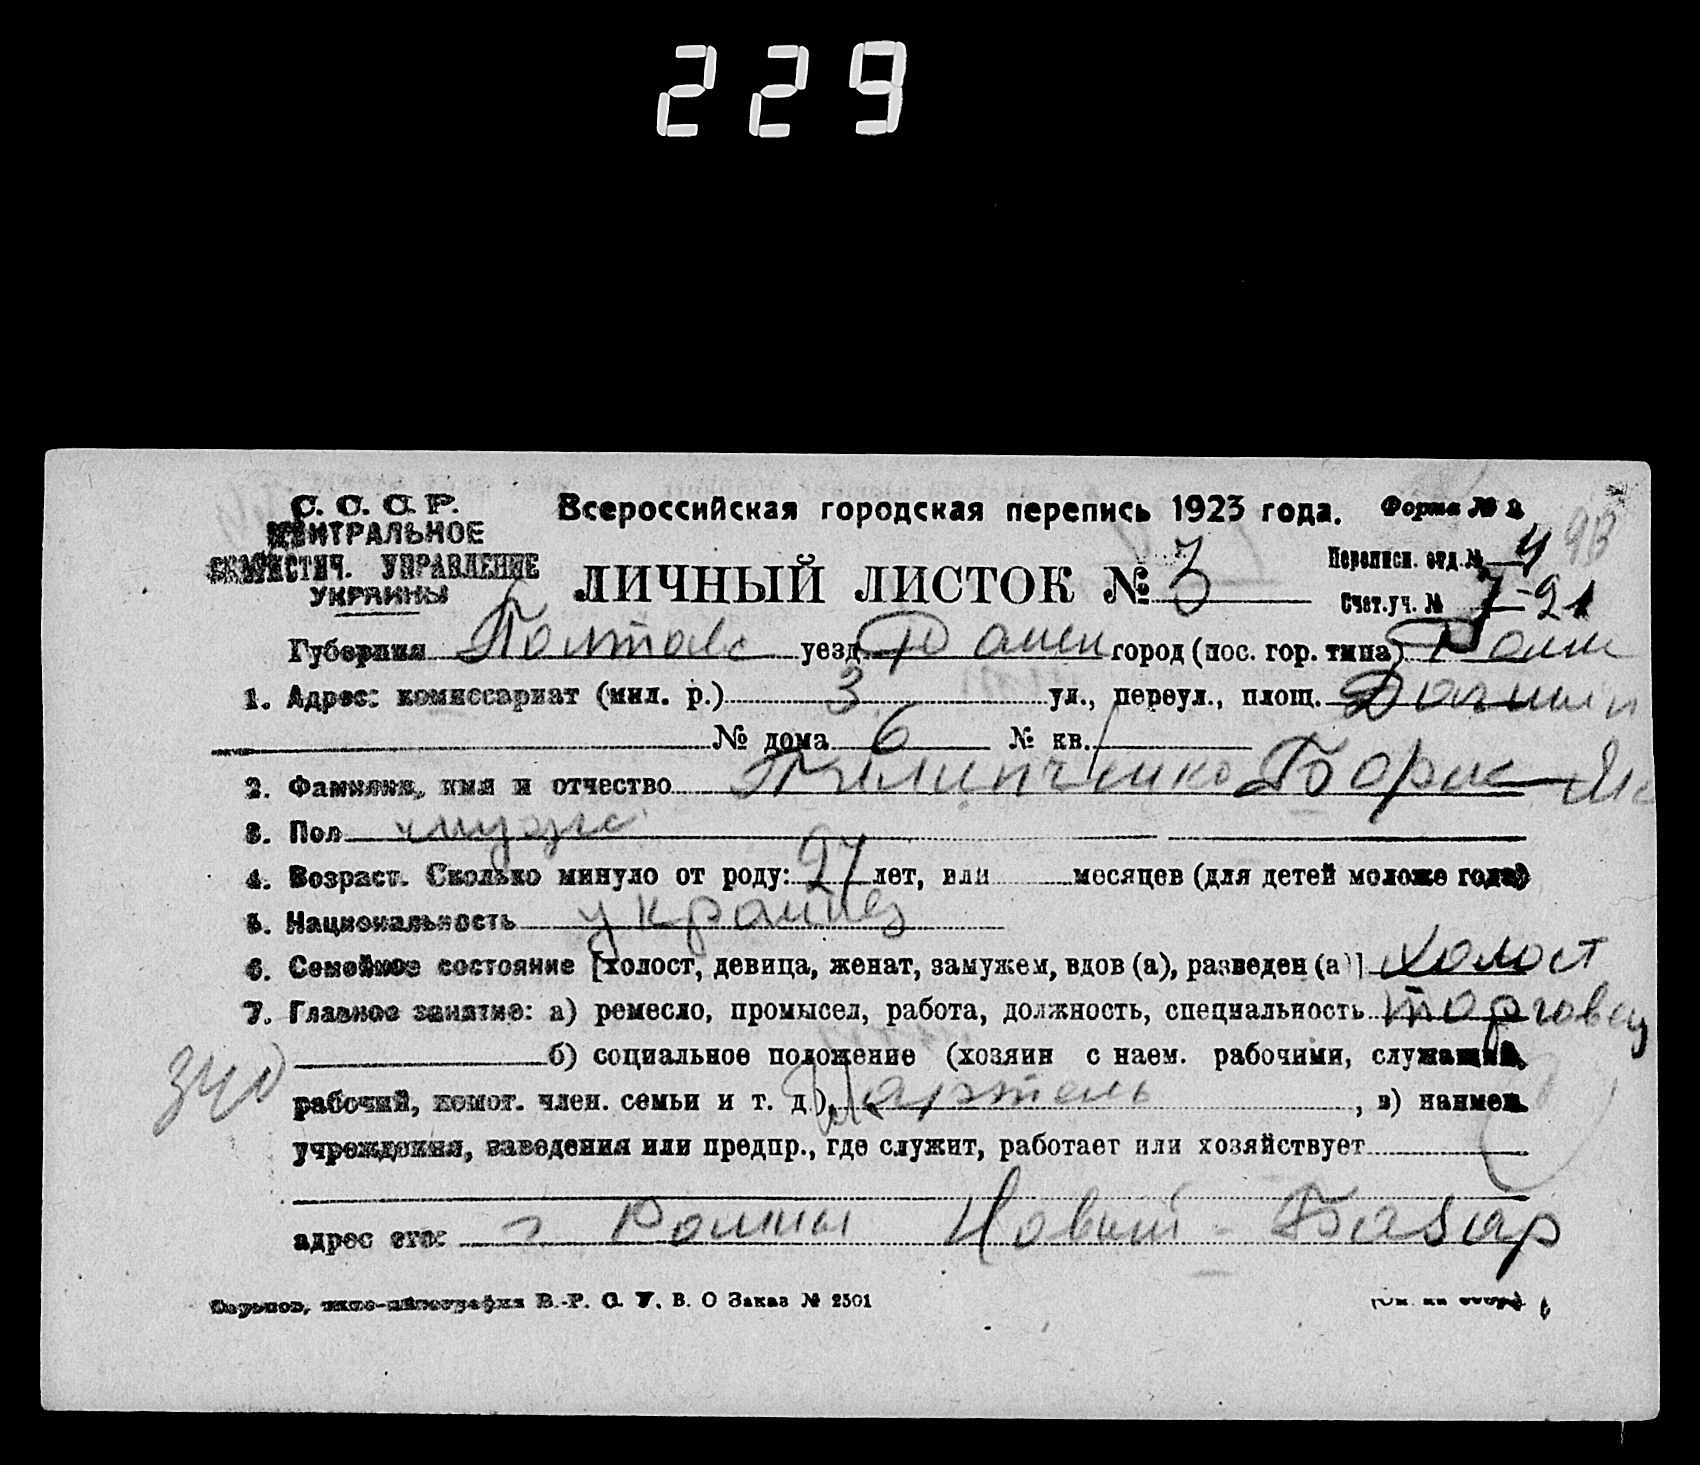 229
С. С. С. Р.
ЦЕНТРАЛЬНОЕ
СТАТИСТИЧ. УПРАВЛЕНИЕ
УКРАИНЫ
Всероссийская городская перепись 1923 года.
Форма № 2
ЛИЧНЫЙ ЛИСТОК № 3
Переписн. отд. № 4 93
Счет. уч. № 7-21
Губерния Полтавс уезд Ромен город (пос. гор. типа) Ромн
1. Адрес: комиссариат (мил. р.) 3 ул., переул., площ.
№ дома 6 № кв. 1
2. Фамилия, имя и отчество Пилипченко Борис
3. Пол муж
4. Возраст. Сколько минуло от роду: 27 лет, или месяцев (для детей моложе года)
5. Национальность украинец
6. Семейное состояние [холост, девица, женат, замужем, вдов (а), разведен (а)] холост
7. Главное занятие: а) ремесло, промысел, работа, должность, специальность торговец
б) социальное положение (хозяин с наем. рабочими, служащий,
рабочий, помог. член. семьи и т. д.), артель, в) наимен.
учреждения, заведения или предпр., где служит, работает или хозяйствует
адрес его: г Ромны Новый - Базар
Харьков, типо-литография В.-Р. С. У. В. О Заказ № 2501